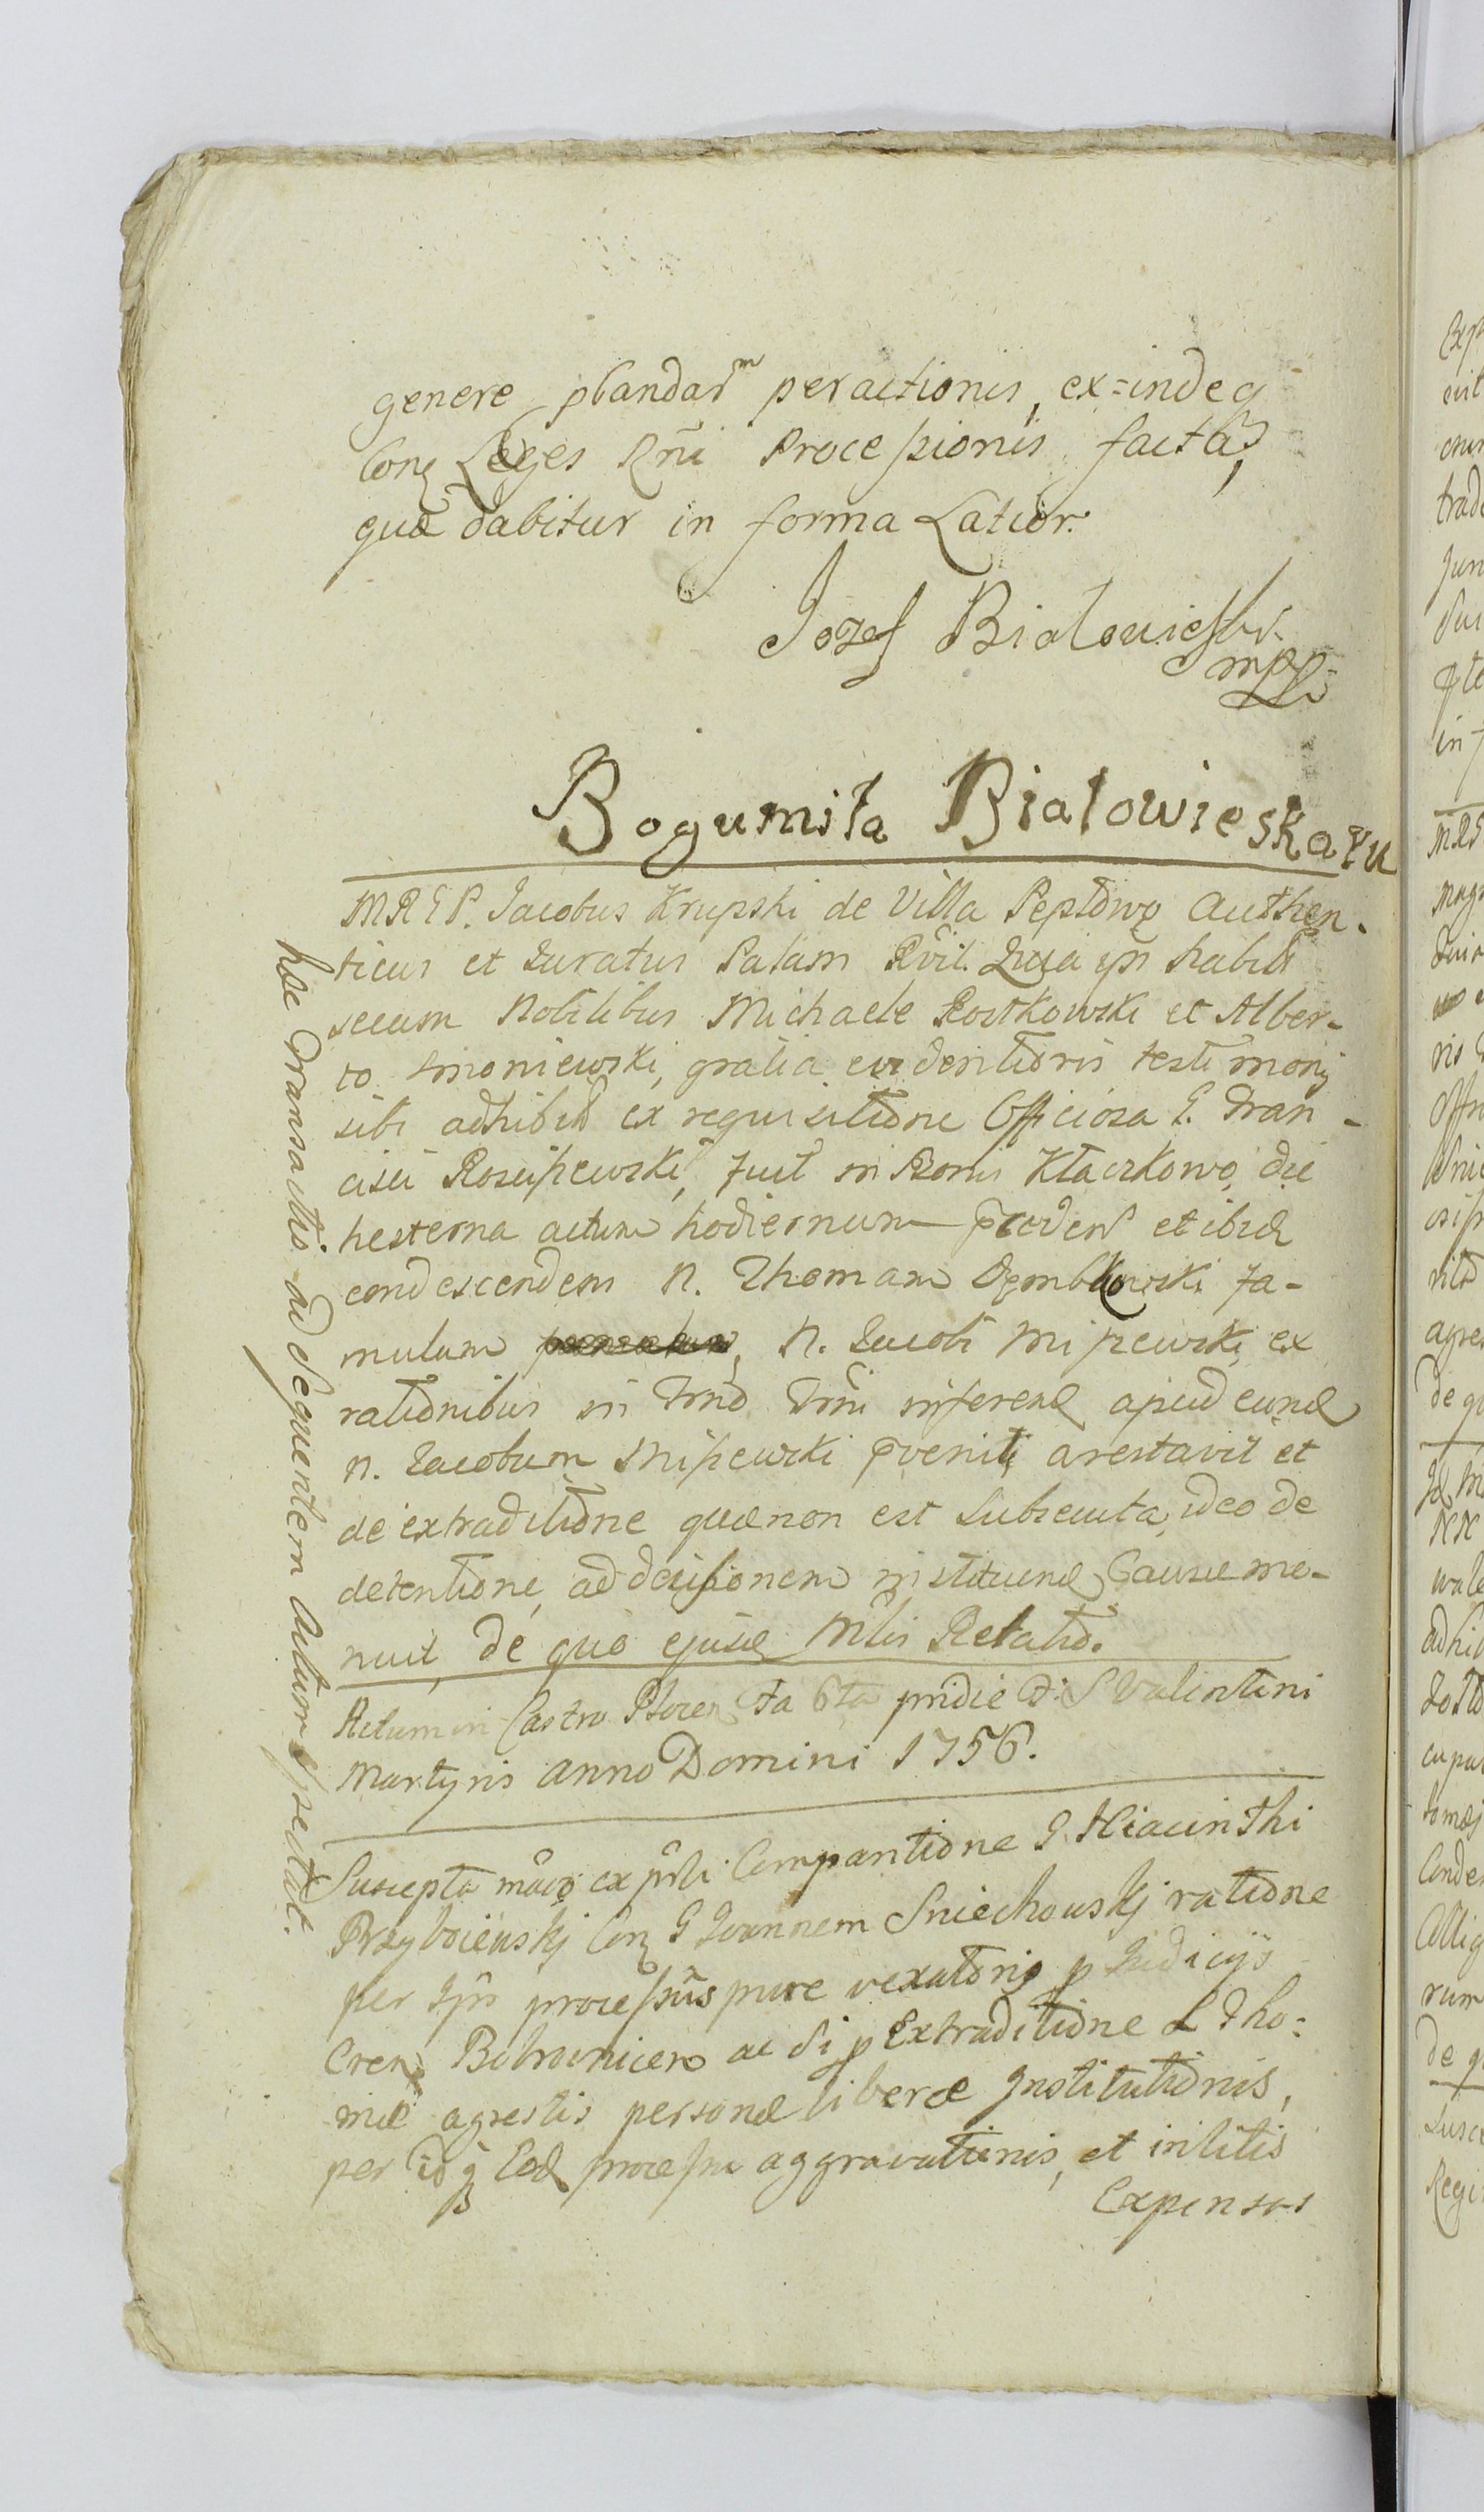 genere pbandarm peractionis, ex=indeq
Conq Leges Rni Processionis facta,
quæ dabitur in forma Latior.
Jozef Bialowieski
mpp
Bogumiła Białowieska
MRGP. Jacobus Krupski de Villa Peplowo Authen-
ticus et Juratus Palam Rvit. Quia ips habits
secum Nobilibus Michaele Rostkowski et Alber-
to Smoniewski, gratia evidentioris testimonij
sibi adhibit ex requisitione Officiosa G. Fran-
cisci Rosciszewski, fuit in Bonis Kłaczkowo, die
hesterna actum hodiernum pceden et ibid
condescendens N. Thomam Dembkowski fa-
mulum N. Jacobi Miszewski, ex
rationibus in Trno Trni inferend apud eund
N. Jacobum Miszewski pvenit arestavit et
de extraditione quæ non est Subsecuta, ideo de
detentione, ad decisionem instituend Causæ mo-
nuit, de quo ejusd Mlis Relatio.
Actum in Castro Plocen Fa 6ta pridie D: S Valentini
Martyris anno Domini 1756.
Suscepta ex Comparitione G. Hiacinthi
Przyboiewskj Conq G Joannem Sniechowskj ratione
per Ipm processus pure vexatorio p Judicijs
Cren Bobrovnicen ac si p Extraditione L Tho:
mæ agrestis personæ liberæ Institutionis,
per id q Eod processu aggravationis, et inlitis
Expensas
hæc Transactio ad Sequentem Actum Spectat.